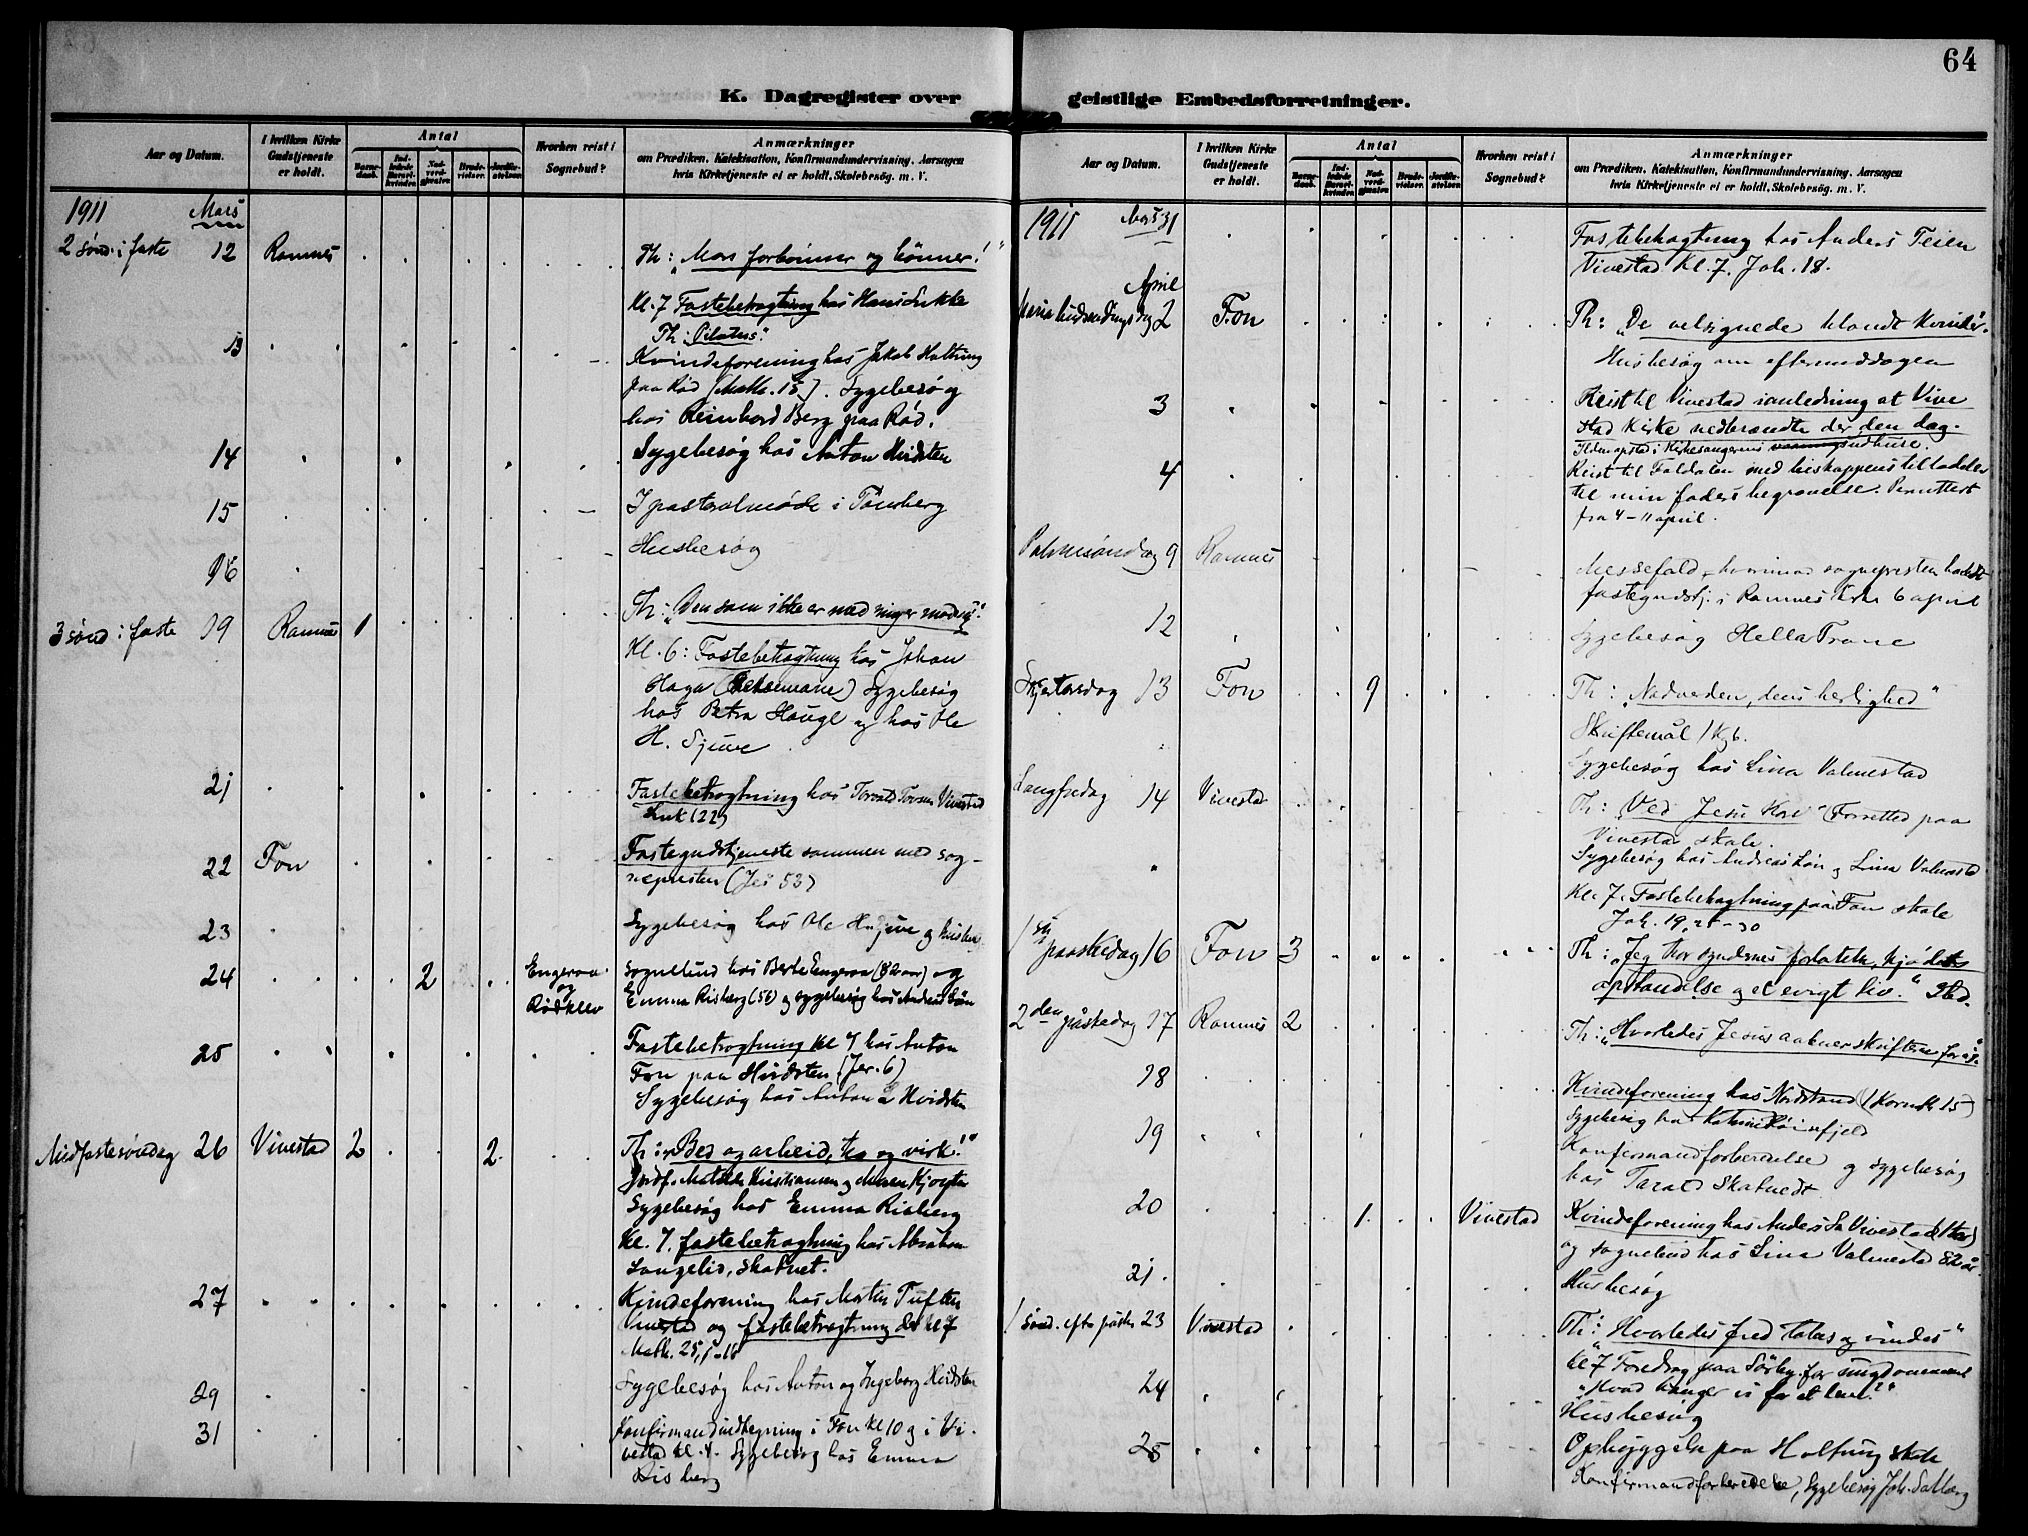 64
K. Dagregister over geistlige Embedsforretninger.
Aar og Datum.
I hvilken Kirke Gudstjeneste er holdt.
Antal
Barnedaab.
Indledede Barselkvinder.
Nadverdgjæster.
Brudevielser.
Jordfæstelser.
Hvorhen reist i Sognebud?
Anmærkninger
om Prædiken, Katekisation, Konfirmandundervisning, Aarsagen
hvis Kirketjeneste ei er holdt, Skolebesøg. m. V.
1911 Mars
2 sønd. i faste 12 Ramnes Th: "Mors forbønner og bønner!"
Kl. 7 Fastebetragtning hos Hans
Th: Pilatus."
13 Kvindeforening hos Jakob Holtung
paa Rød (Math. 15). Sygebesøg
hos Reinhard Berg paa Rød.
14 Sygebesøg hos Anton Hvidsten
15 I pastoralmøde i Tønsberg
16 Husbesøg
3 sønd i faste 19 Ramnes 1 Th: "Den som ikke er med mig er mod mig".
Kl. 6: Fastebetragtning hos Johan
Haga (Getsemane) Sygebesøg
hos Petra Hougl og hos Ole
H. Gjeive
21 Fastebetragtning hos Torvald Vivestad
Luk (22)
22 Fon Fastegudstjeneste sammen med sog-
nepresten (Jes 53)
23 Sygebesøg hos Ole og
24 2 Engeraa og Rødklev Sognebud hos Berte Engeraa (82 aar) og
Emma Risberg (50) og sygebesøg hos Andreas Løn
25 Fastebetragtning kl 7 hos Anton
Fon paa Hvidsten (Jer. 6)
Sygebesøg hos Anton Hvidsten
Midfastesøndag 26 Vivestad 2 2. Th: "Bed og arbeid, tro og virk!"
Jordf. Matilde Kristiansen og Maren
Sygebesøg hos Emma Risberg
Kl. 7. fastebetragtning hos Abraham
Langelid, Skatvet.
27 Kvindeforening hos Morten Tuften
Vivestad og fastebetragtning der kl 7
Math. 25,1-18
29 Sygebesøg hos Anton og Ingeborg Hvidsten
31 Konfirmandindtegning i Fon kl 10 og i Vi-
vestad kl. 4. Sygebesøg hos Emma
Risberg
Aar og Datum.
I hvilken Kirke Gudstjeneste er holdt.
Antal
Barnedaab.
Indledede Barselkvinder.
Nadverdgjæster.
Brudevielser.
Jordfæstelser.
Hvorhen reist i Sognebud?
Anmærkninger
om Prædiken, Katekisation, Konfirmandundervisning, Aarsagen
hvis Kirketjeneste ei er holdt, Skolebesøg. m. V.
1911 Mars 31 Fastebetragtning hos Anders Teien
Vivestad. Kl. 7. Joh. 18.
April
Maria budskabsdag 2 Fon Th: "De velsignede blandt kvinder".
Husbesøg om eftermiddagen
3 Reist til Vivestad i anledning at Vive
stad Kirke nedbrændte der den dag.
Ilden opstod i Kirkesangerens udhuse.
4 Reist til med biskoppens tilladelse
til min faders begravelse. Permittert
fra 4 – 11 april.
Palmesøndag 9 Ramnes Messefald, hvorimod sognepresten havde
fastegudstj. i Ramnes kirke 6 april
12 Sygebesøg Hella Trane
Skjærtorsdag 13 Fon 9 Th: "Nadverden, dens herlighed"
Skriftemål
Sygebesøg hos Lina Valmestad
Langfredag 14 Vivestad Th: "Ved Jesu Kors" (Forrettet paa
Vivestad skole.
Sygebesøg hos Andreas Løn og Lina Valmestad
Kl. 7. Fastebetragtning paa Fon skole
Joh. 19, 25-30
1ste paaskedag 16 Fon 3 Th: "Jeg tror syndernes forlatelse, kjødets
opstandelse og et evigt liv."
2den påskedag 17 Ramnes 2 Th: "Hvorledes Jesus aabner skriftene for os".
18 Kvindeforening hos Nordstrand (1 Korint 15)
Sygebesøg hos
19 Konfirmandforberedelse og sygebesøg
hos Skatvedt
20 1 Vivestad Kvindeforening hos Anders Vivestad
og sognebud hos Lina Valmestad 82 år.
21. Husbesøg
1 sønd. efter påske 23 Vivestad Th: "Hvorledes fred tabes og vindes"
Kl 7 Foredrag paa Sørby for ungdommen
"Hvad trænger vi for at leve?"
24 Husbesøg
25 Ophøiggelse paa Holtung skole
Konfirmandforberedelse, Sygebesøg Joh. Solberg